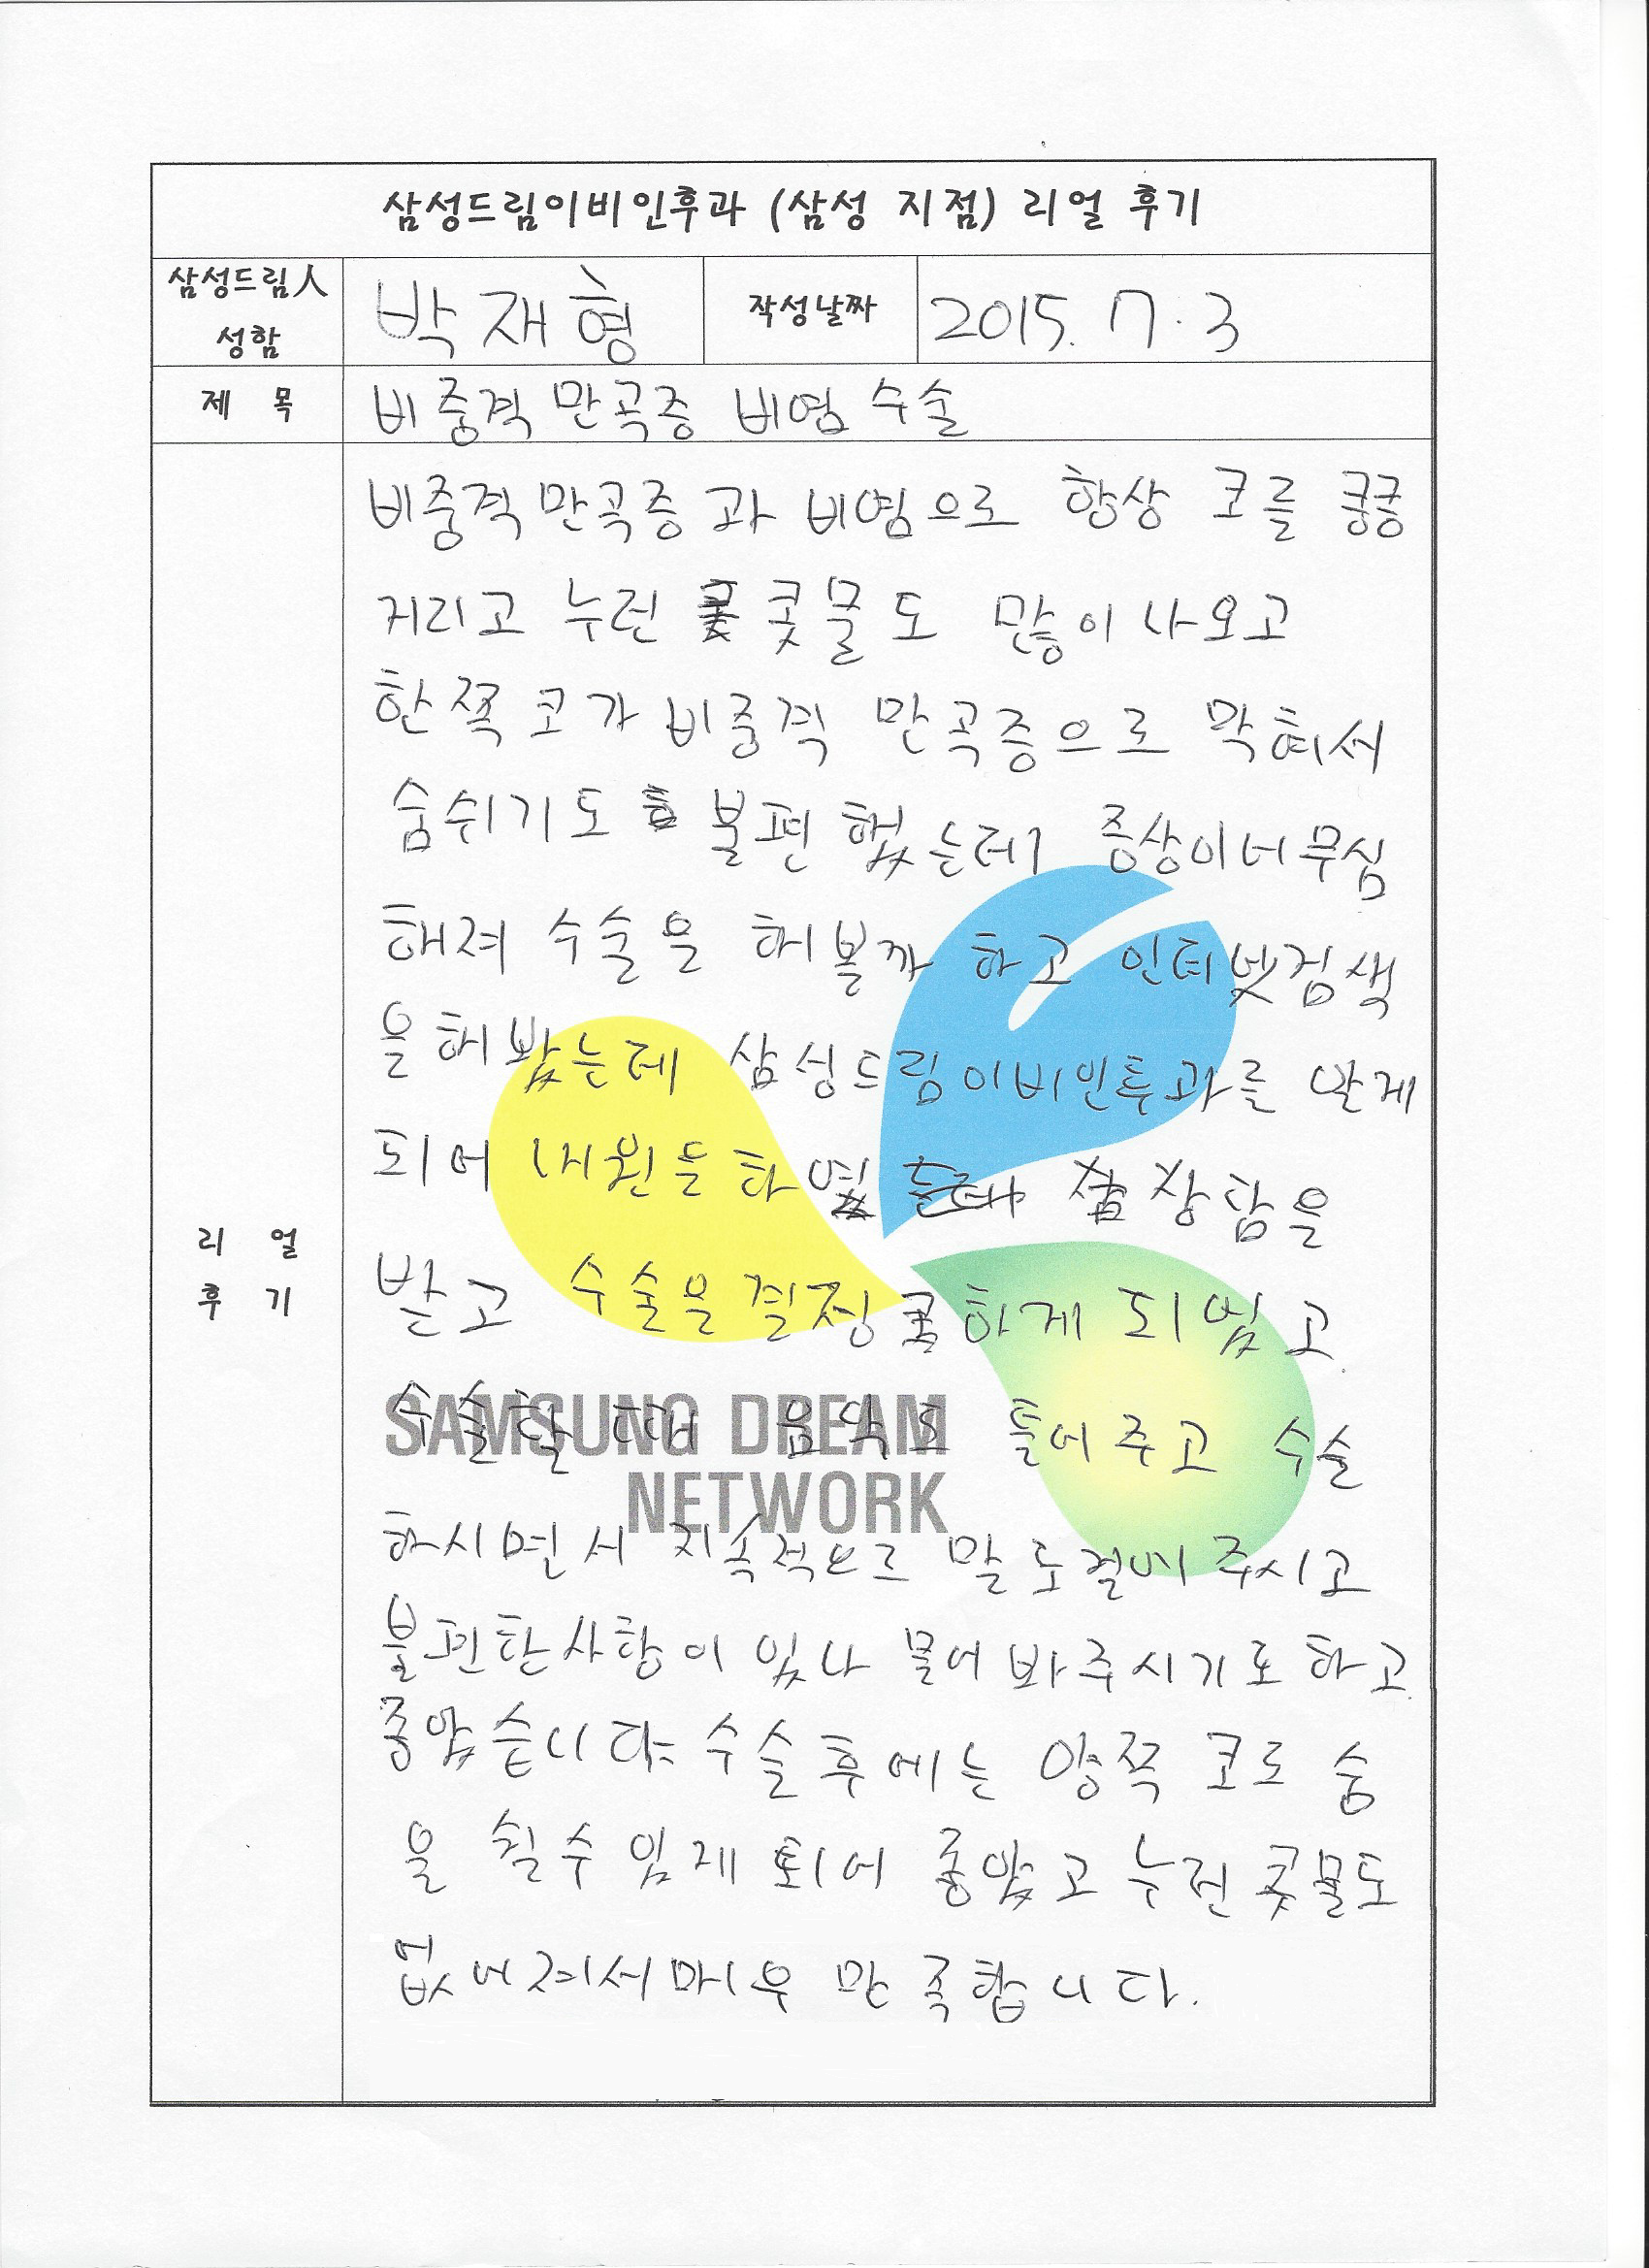 삼성드림이비인후과 (삼성 지점) 리얼 후기
삼성드림人 성함
박재형
작성날짜
2015. 7. 3
제 목
비중격 만곡증 비염 수술
리 얼
후 기
비중격 만곡증 과 비염으로 항상 코를 킁킁
거리고 누런 콧물도 많이 나오고
한쪽 코가 비중격 만곡증으로 막혀서
숨쉬기도 불편 했는데 증상이너무심
해져 수술을 해볼까 하고 인터넷검색
을해봤는데 삼성드림이비인후과를 알게
되어 내원을하였 상담을
받고 수술을 결정 하게 되었고
수술할 때 음악도 틀어주고 수술
하시면서 지속적으로 말도걸어 주시고
불편한사항이 있나 물어 봐주시기도하고
좋았습니다 수술후에는 양쪽 코로 숨
을 쉴수 있게 되어 좋았고 누런콧물도
없어져서매우 만족합니다.
SAMSUNG DREAM
NETWORK